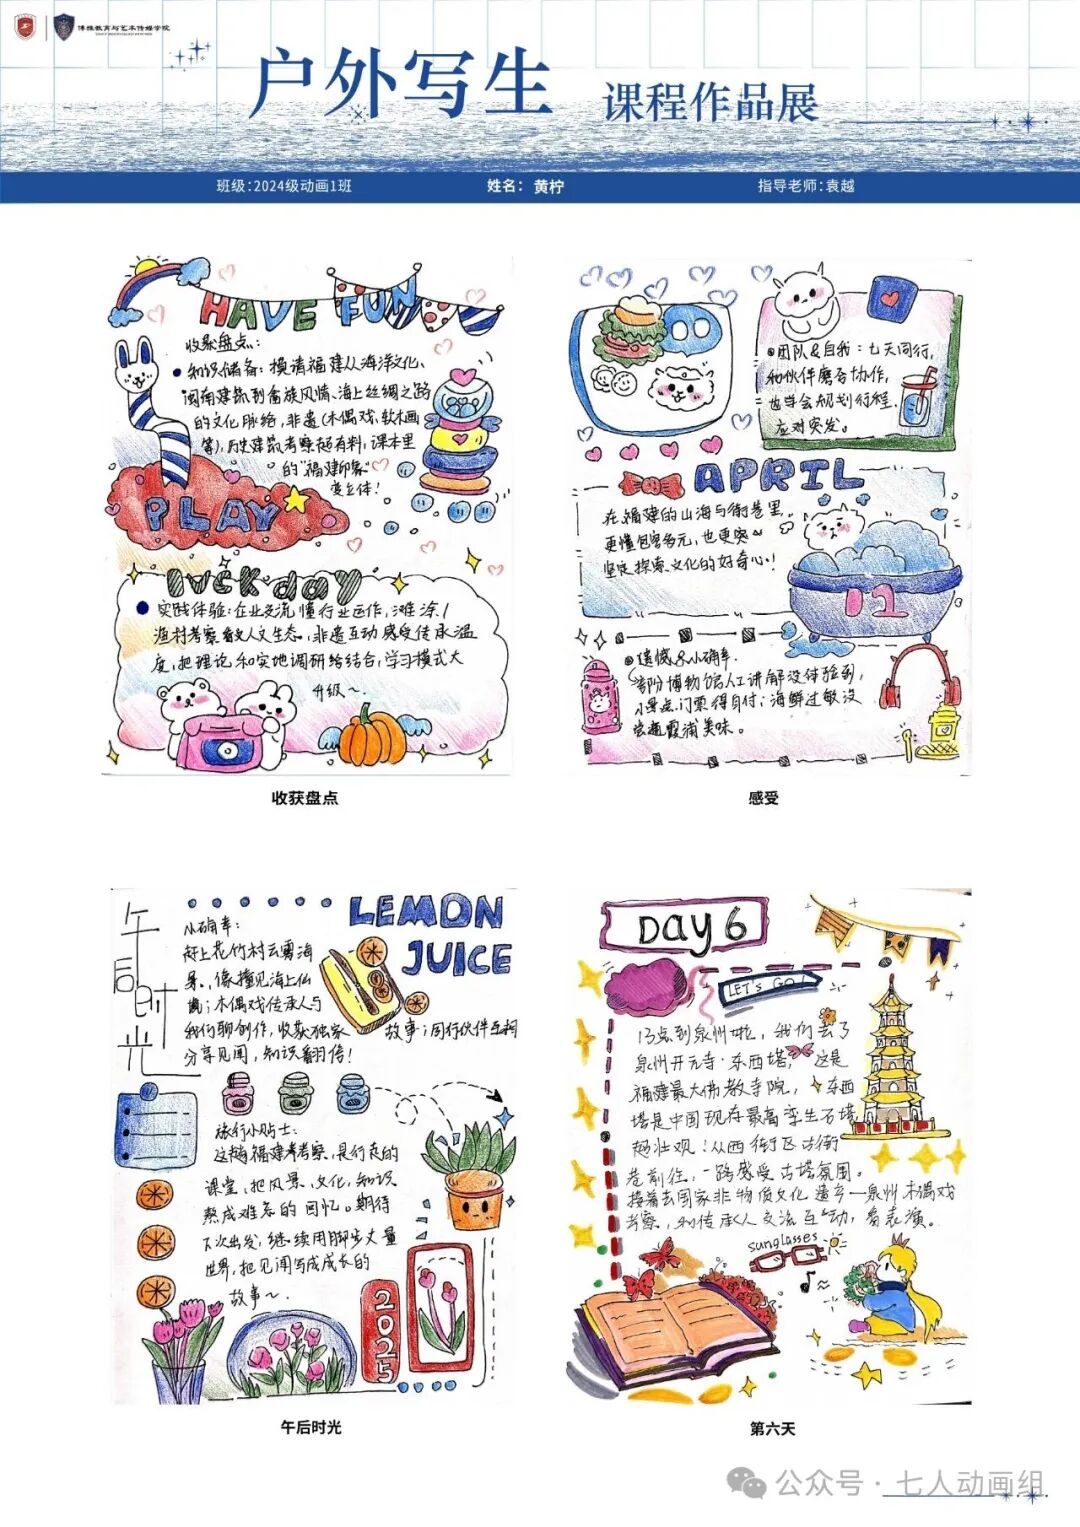 博雅教育与艺术传媒学院
户外写生 课程作品展
班级:2024级动画1班 姓名: 黄柠 指导老师:袁越
HAVE FUN
收获盘点:
知识储备:摸清福建从海洋文化、
闽南建筑到畲族风情、海上丝绸之路
的文化脉络,非遗(木偶戏、软木画
等),历史建筑考察超有料,课本里
的"福建印象"
变立体!
PLAY
luckday
实践体验:企业交流懂行业运作,滩涂/
渔村考察看人文生态,非遗互动感受传承温
度,把理论和实地调研给结合,学习模式大
升级~
收获盘点
团队&自我:七天同行,
和伙伴磨合协作,
也学会规划行程
应对突发。
APRIL
在福建的山海与街巷里
更懂包容多元,也更突~
坚定探索文化的好奇心!
12
遗憾&小确幸.
部分博物馆人工讲解没体验到,
小景点门票得自付;海鲜过敏没
尝遍霞浦美味。
感受
午后时光
LEMON
JUICE
小确幸:
赶上花竹村云雾海
景,像撞见海上仙
境;木偶戏传承人与
我们聊创作,收获独家
故事;同行伙伴互相
分享见闻,知识翻倍!
旅行小贴士:
这趟福建考察,是行走的
课堂,把风景、文化、知识
熬成难忘的回忆。期待
下次出发,继续用脚步丈量
世界,把见闻写成成长的
故事~.
2025
午后时光
Day 6
LET'S GO!
13点到泉州啦,我们去了
泉州开元寺·东西塔,这是
福建最大佛教寺院,东西
塔是中国现存最高孪生石塔
超壮观!从西街区古街
巷前往,一路感受古塔氛围。
接着去国家非物质文化遗产—泉州木偶戏
考察,和传承人交流互动,看表演。
sunglasses
第六天
公众号·七人动画组